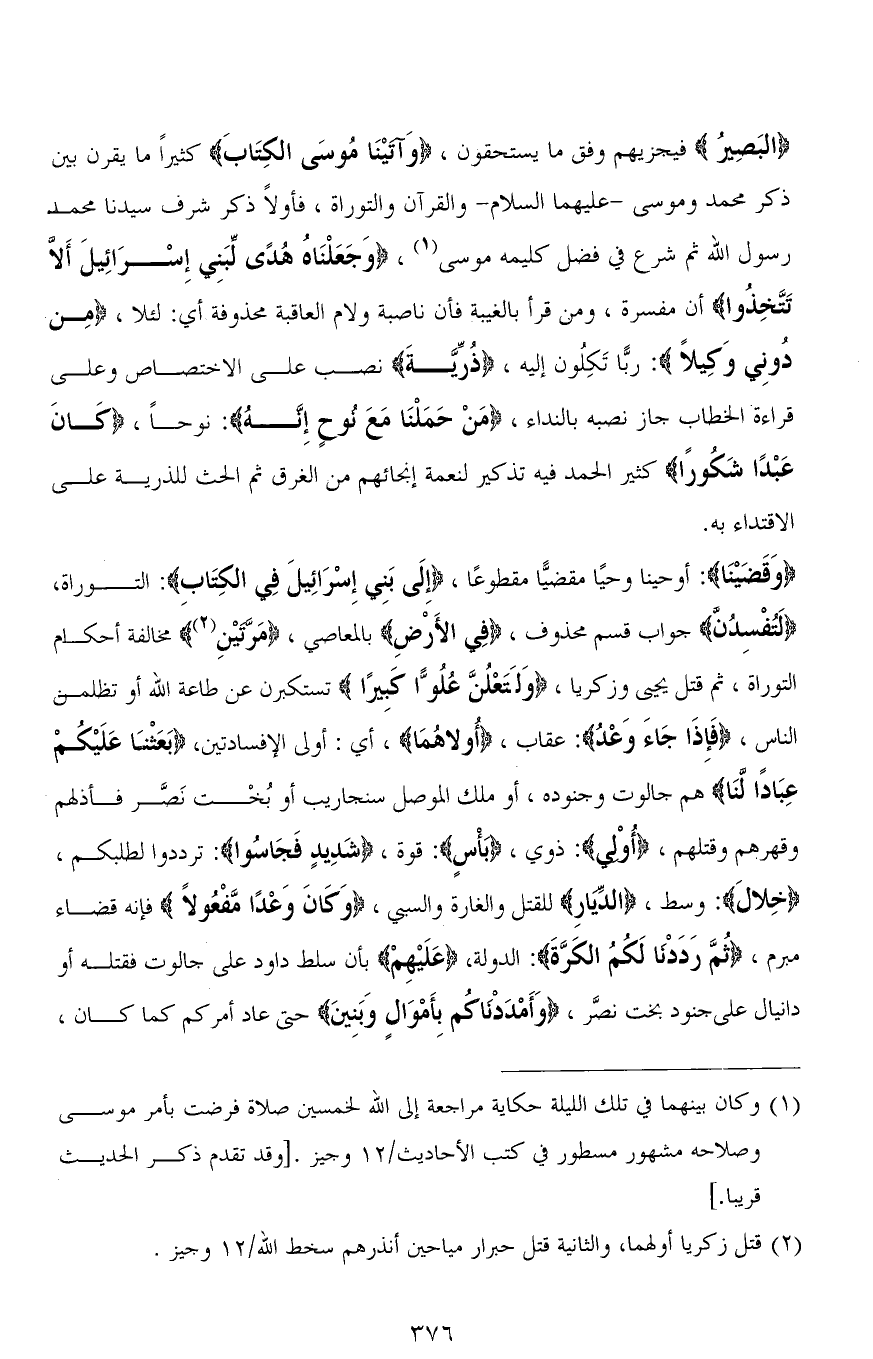 ﴿البَصِيرُ﴾ فيجزيهم وفق ما يستحقون ، ﴿وَآتَيْنَا مُوسَى الكِتَابَ﴾ كثيراً ما يقرن بين
ذكر محمد وموسى -عليهما السلام- والقرآن والتوراة ، فأولاً ذكر شرف سيدنا محمد
رسول الله ثم شرع في فضل كليمه موسى(١) ، ﴿وَجَعَلْنَاهُ هُدًى لِّبَنِي إِسْرَائِيلَ أَلاَّ
تَتَّخِذُوا﴾ أن مفسرة ، ومن قرأ بالغيبة فأن ناصبة ولام العاقبة محذوفة أي: لئلا ، ﴿مِن
دُونِي وَكِيلاً﴾: ربًّا تَكِلُون إليه ، ﴿ذُرِّيَّةَ﴾ نصب على الاختصاص وعلى
قراءة الخطاب جاز نصبه بالنداء ، ﴿مَنْ حَمَلْنَا مَعَ نُوحٍ إِنَّهُ﴾: نوحاً ، ﴿كَانَ
عَبْدًا شَكُورًا﴾ كثير الحمد فيه تذكير لنعمة إنجائهم من الغرق ثم الحث للذرية على
الاقتداء به.
﴿وَقَضَيْنَا﴾: أوحينا وحيًا مقضيًّا مقطوعًا ، ﴿إِلَى بَنِي إِسْرَائِيلَ فِي الكِتَابِ﴾: التوراة،
﴿لَتُفْسِدُنَّ﴾ جواب قسم محذوف ، ﴿فِي الأَرْضِ﴾ بالمعاصي ، ﴿مَرَّتَيْنِ(٢)﴾ مخالفة أحكام
التوراة ، ثم قتل يحيى وزكريا ، ﴿وَلَتَعْلُنَّ عُلُوًّا كَبِيرًا﴾ تستكبرن عن طاعة الله أو تظلمن
الناس ، ﴿فَإِذَا جَاءَ وَعْدُ﴾: عقاب ، ﴿أُولاهُمَا﴾ ، أي : أولى الإفسادتين، ﴿بَعَثْنَا عَلَيْكُمْ
عِبَادًا لَّنَا﴾ هم جالوت وجنوده ، أو ملك الموصل سنجاريب أو بُخْت نَصَّر فأذلهم
وقهرهم وقتلهم ، ﴿أُوْلِي﴾: ذوي ، ﴿بَأْسٍ﴾: قوة ، ﴿شَدِيدٍ فَجَاسُوا﴾: ترددوا لطلبكم ،
﴿خِلالَ﴾: وسط ، ﴿الدِّيَارِ﴾ للقتل والغارة والسبي ، ﴿وَكَانَ وَعْدًا مَّفْعُولاً﴾ فإنه قضاء
مبرم ، ﴿ثُمَّ رَدَدْنَا لَكُمُ الكَرَّةَ﴾: الدولة، ﴿عَلَيْهِمْ﴾ بأن سلط داود على جالوت فقتله أو
دانيال على جنود بخت نصَّر ، ﴿وَأَمْدَدْنَاكُم بِأَمْوَالٍ وَبَنِينَ﴾ حتى عاد أمركم كما كان ،
(١) وكان بينهما في تلك الليلة حكاية مراجعة إلى الله لخمسين صلاة فرضت بأمر موسى
وصلاحه مشهور مسطور في كتب الأحاديث/١٢ وجيز .[وقد تقدم ذكر الحديث
قريبا.]
(٢) قتل زكريا أولهما، والثانية قتل حبرار مياحين أنذرهم سخط الله/١٢ وجيز .
٣٧٦